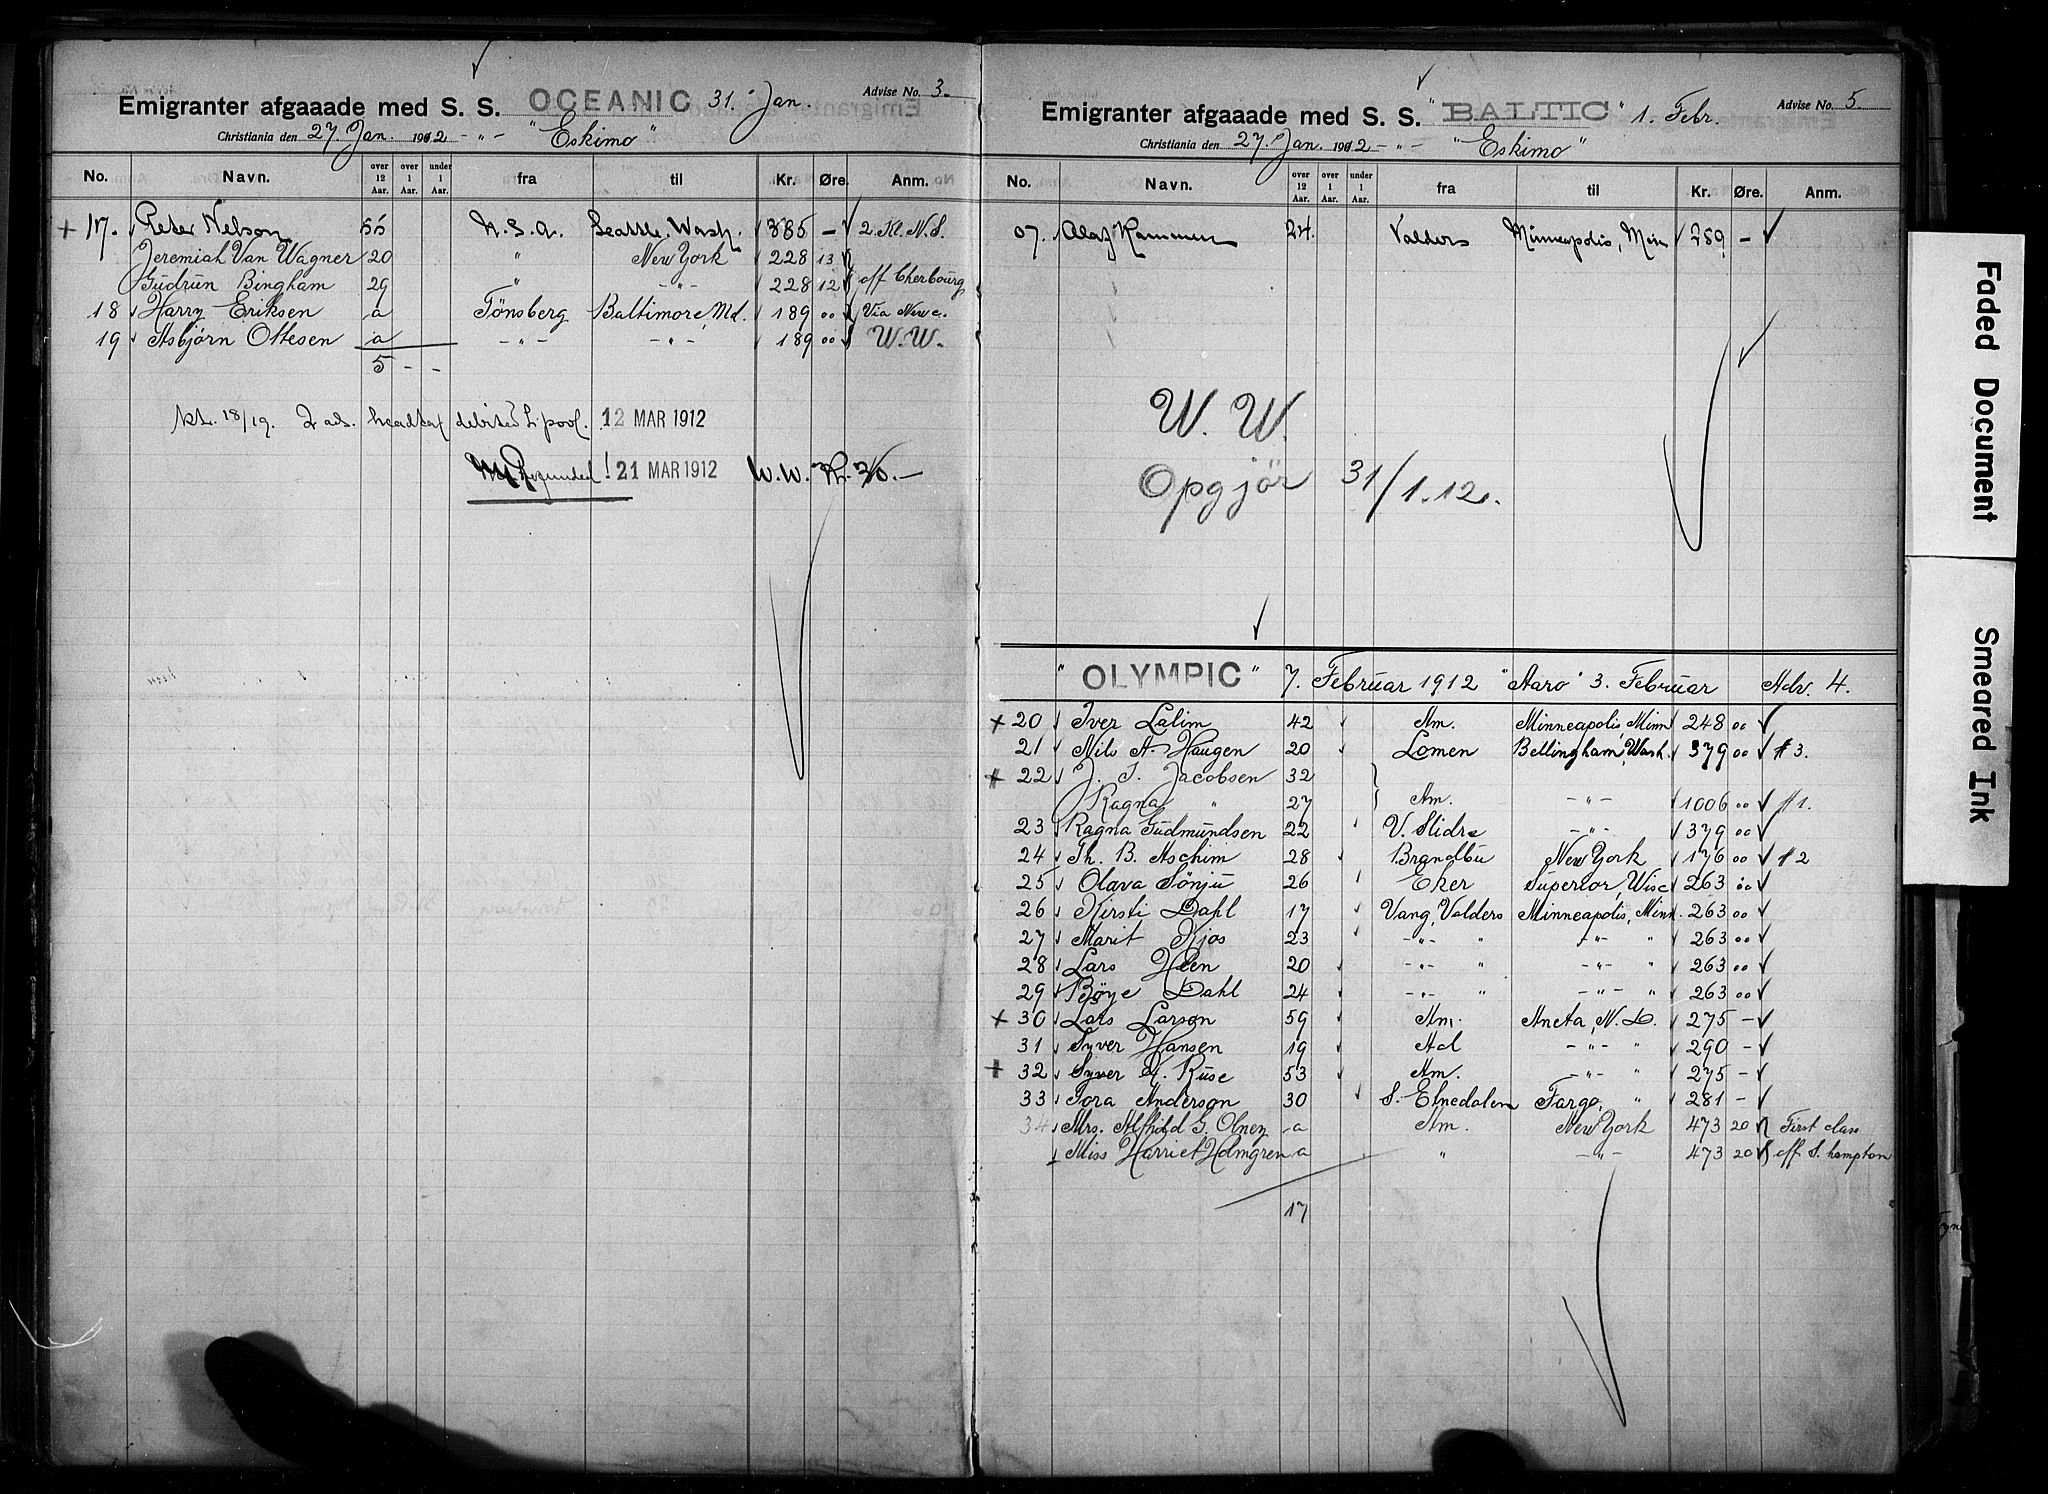 Emigranter afgaaade med S. S. OCEANIC 31. Jan. Advise No. 3.
Christiania den 27. Jan. 1912 - „ - "Eskimo"
No. Navn. over 12 Aar. over 1 Aar. under 1 Aar. fra til Kr. Øre. Anm.
+ 17. Peter Nelson 55 U.S.A. Seattle, Wash. 385 - 2. Kl. N.S.
Jeremiah Van Wagner 20 " New York 228 13
Gudrun Bingham 29 " - " - 228 12 off Cherbourg
18 Harry Eriksen a Tönsberg Baltimore, Md. 189 00 Via Newc.
19 Asbjörn Ottesen a - " - - " - 189 00 W. W.
5 - -
kt. 18/19. 2 ads. headtax debited L'pool. 12 MAR 1912
Refunded! 21 MAR 1912 W. W. Kr. 30.-
Emigranter afgaaade med S. S. "BALTIC" 1. Febr. Advise No. 5.
Christiania den 27. Jan. 1912 - „ - "Eskimo"
No. Navn. over 12 Aar. over 1 Aar. under 1 Aar. fra til Kr. Øre. Anm.
07. Olaf Hammer 24. Valders Minneapolis, Min 259 -
W. W.
Opgjör 31/1.12.
"OLYMPIC" 7. Februar 1912 "Aaro" 3. Februar Adv. 4.
+ 20 Iver Lalim 42 Am. Minneapolis, Minn 248 00
21 Nils A. Haugen 20 Lomen Bellingham, Wash. 379 00 # 3.
+ 22 J. I. Jacobsen 32
Ragna " 27 Am. - " - 1006 00 # 1.
23 Ragna Gudmundsen 22 V. Slidre - " - 379 00
24 Th. B. Aschim 28 Brandbu New York 176 00 # 2
25 Olava Sönju 26 Eker Superior, Wisc 263 00
26 Kirsti Dahl 17 Vang, Valders Minneapolis, Minn. 263 00
27 Marit Kjos 23 - " - " - " - " 263 00
28 Lars Heen 20 - " - " - " - " 263 00
29 Böye Dahl 24 - " - " - " - " 263 00
+ 30 Lars Larson 59 Am. Aneta, N. D. 275 -
31 Syver Hansen 19 Aal - " - " 290 -
+ 32 Syver H. Ruse 53 Am. - " - " 275 -
33 Tora Anderson 30 S. Etnedalen Fargo, " 281 -
34 Mrs. Alfhild G. Olney a Am. New York 473 20 First class
Miss Harriet Holmgren a " - " - 473 20 off S. hampton
17
Faded Document
Smeared Ink